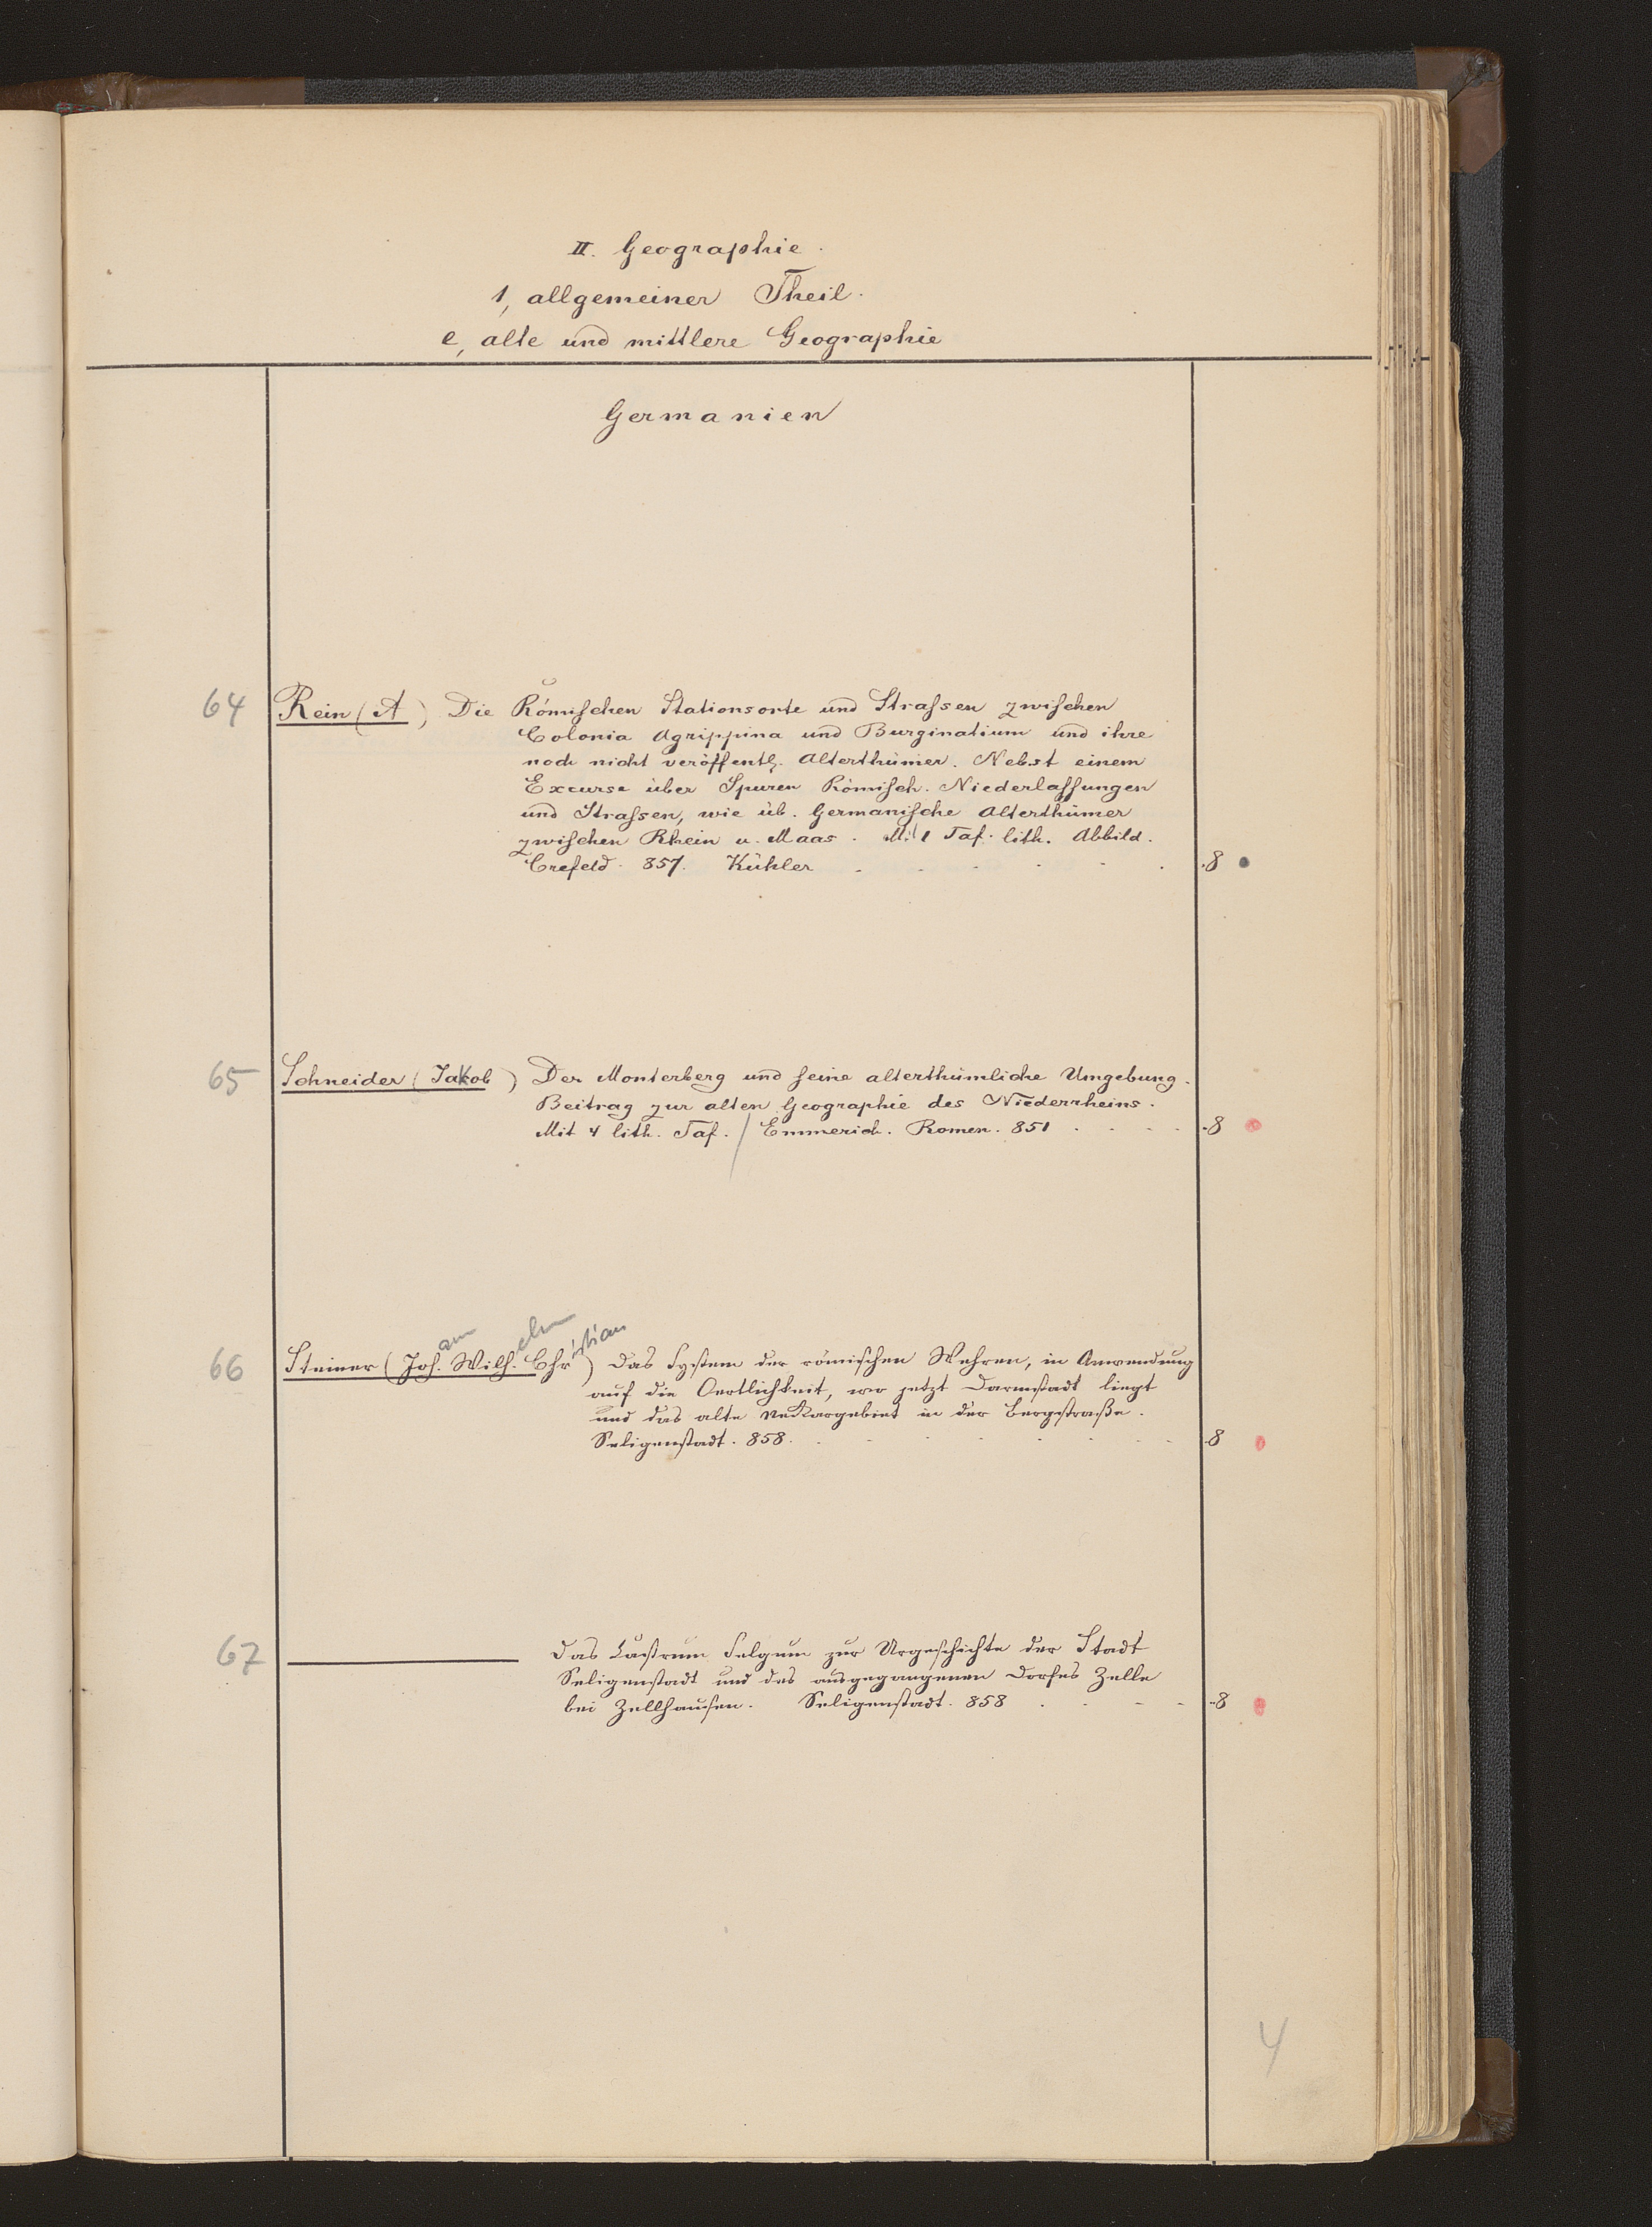 II. Geographie.
1, allgemeiner Theil.
e, alte und mittlere Geographie
Germanien
64 Rein (A) Die Römischen Stationsorte und Strassen zwischen
Colonia Agrippina und Burginatium und ihre
noch nicht veröffentl. Alterthümer. Nebst einem
Excurse über Spuren Römisch. Niederlassungen
und Strassen, wie üb. Germanische Alterthümer
zwischen Rhein u. Maas. Mit 1 Taf. lith. Abbild.
Crefeld. 857. Kühler . . . . . . 8
65 Schneider (Jakob) Der Monterberg und seine alterthümliche Umgebung.
Beitrag zur alten Geographie des Niederrheins.
Mit 4 lith. Taf. / Emmerich. Romen. 851 . . . . 8
ann elm istian
66 Steiner (Joh. Wilh. Chr) Das System der römischen Wehren, in Anwendung
auf die Oertlichkeit, wo jetzt Darmstadt liegt
und das alte Neckargebiet in der Bergstraße.
Seligenstadt. 858. . . . . . . . 8
67 ——— Das Castrum Selgum zur Urgeschichte der Stadt
Seligenstadt und des ausgegangenen Dorfes Zelle
bei Zellhausen. Seligenstadt. 858 . . . . 8
4